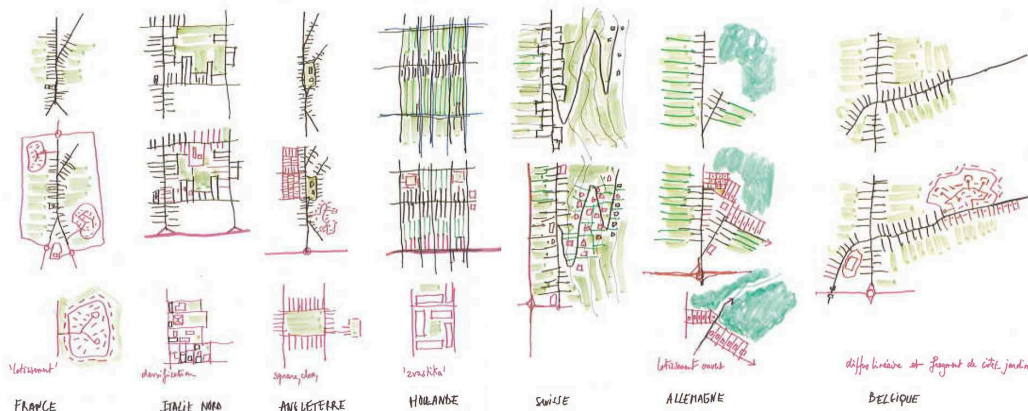 'lotissement'
densification
square, close,
'zvastika'
lotissement ouvert
diffus linéaire et fragment de cité-jardin
FRANCE
ITALIE NORD
ANGLETERRE
HOLLANDE
SUISSE
ALLEMAGNE
BELGIQUE